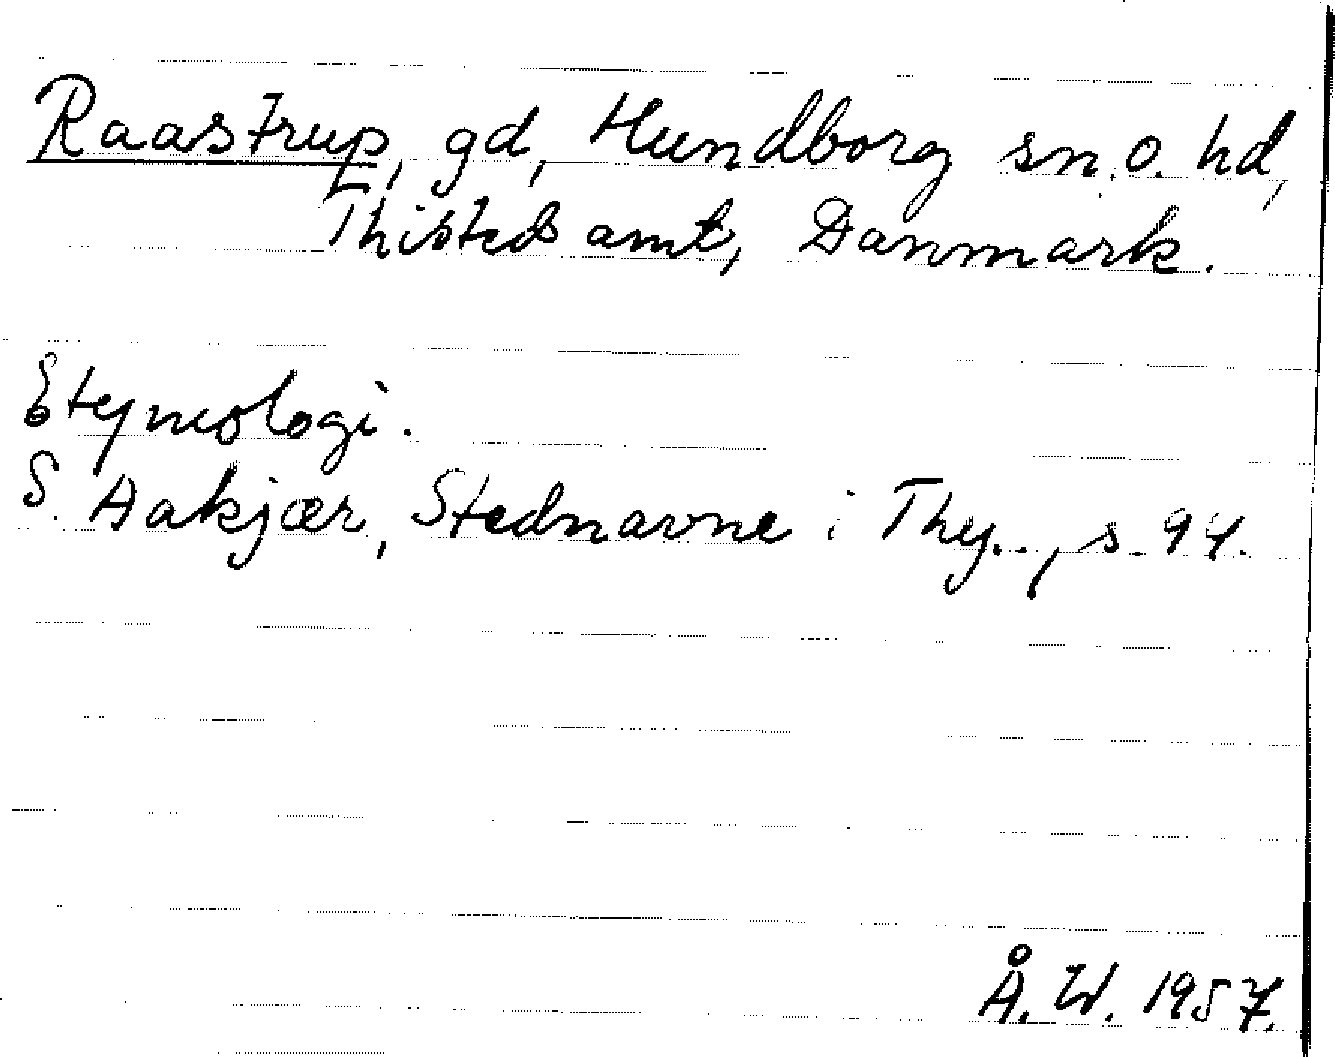 Raastrup, gd, Hundborg sn.o. hd,
Thisteds amt, Danmark.
Etymologi.
S. Aakjær, Stednavne i Thy.., s. 94.
Å. W. 1957.